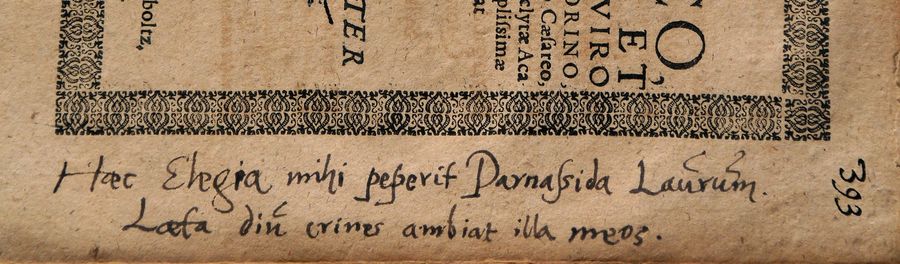 CO,
ET
VIRO
ORINO,
Cæsareo,
clytæ Aca
plissimæ
at
TER
boltz,
Hæc Elegia mihi peperit Parnassida Laurum.
Læta diu crines ambiat illa meos.
393